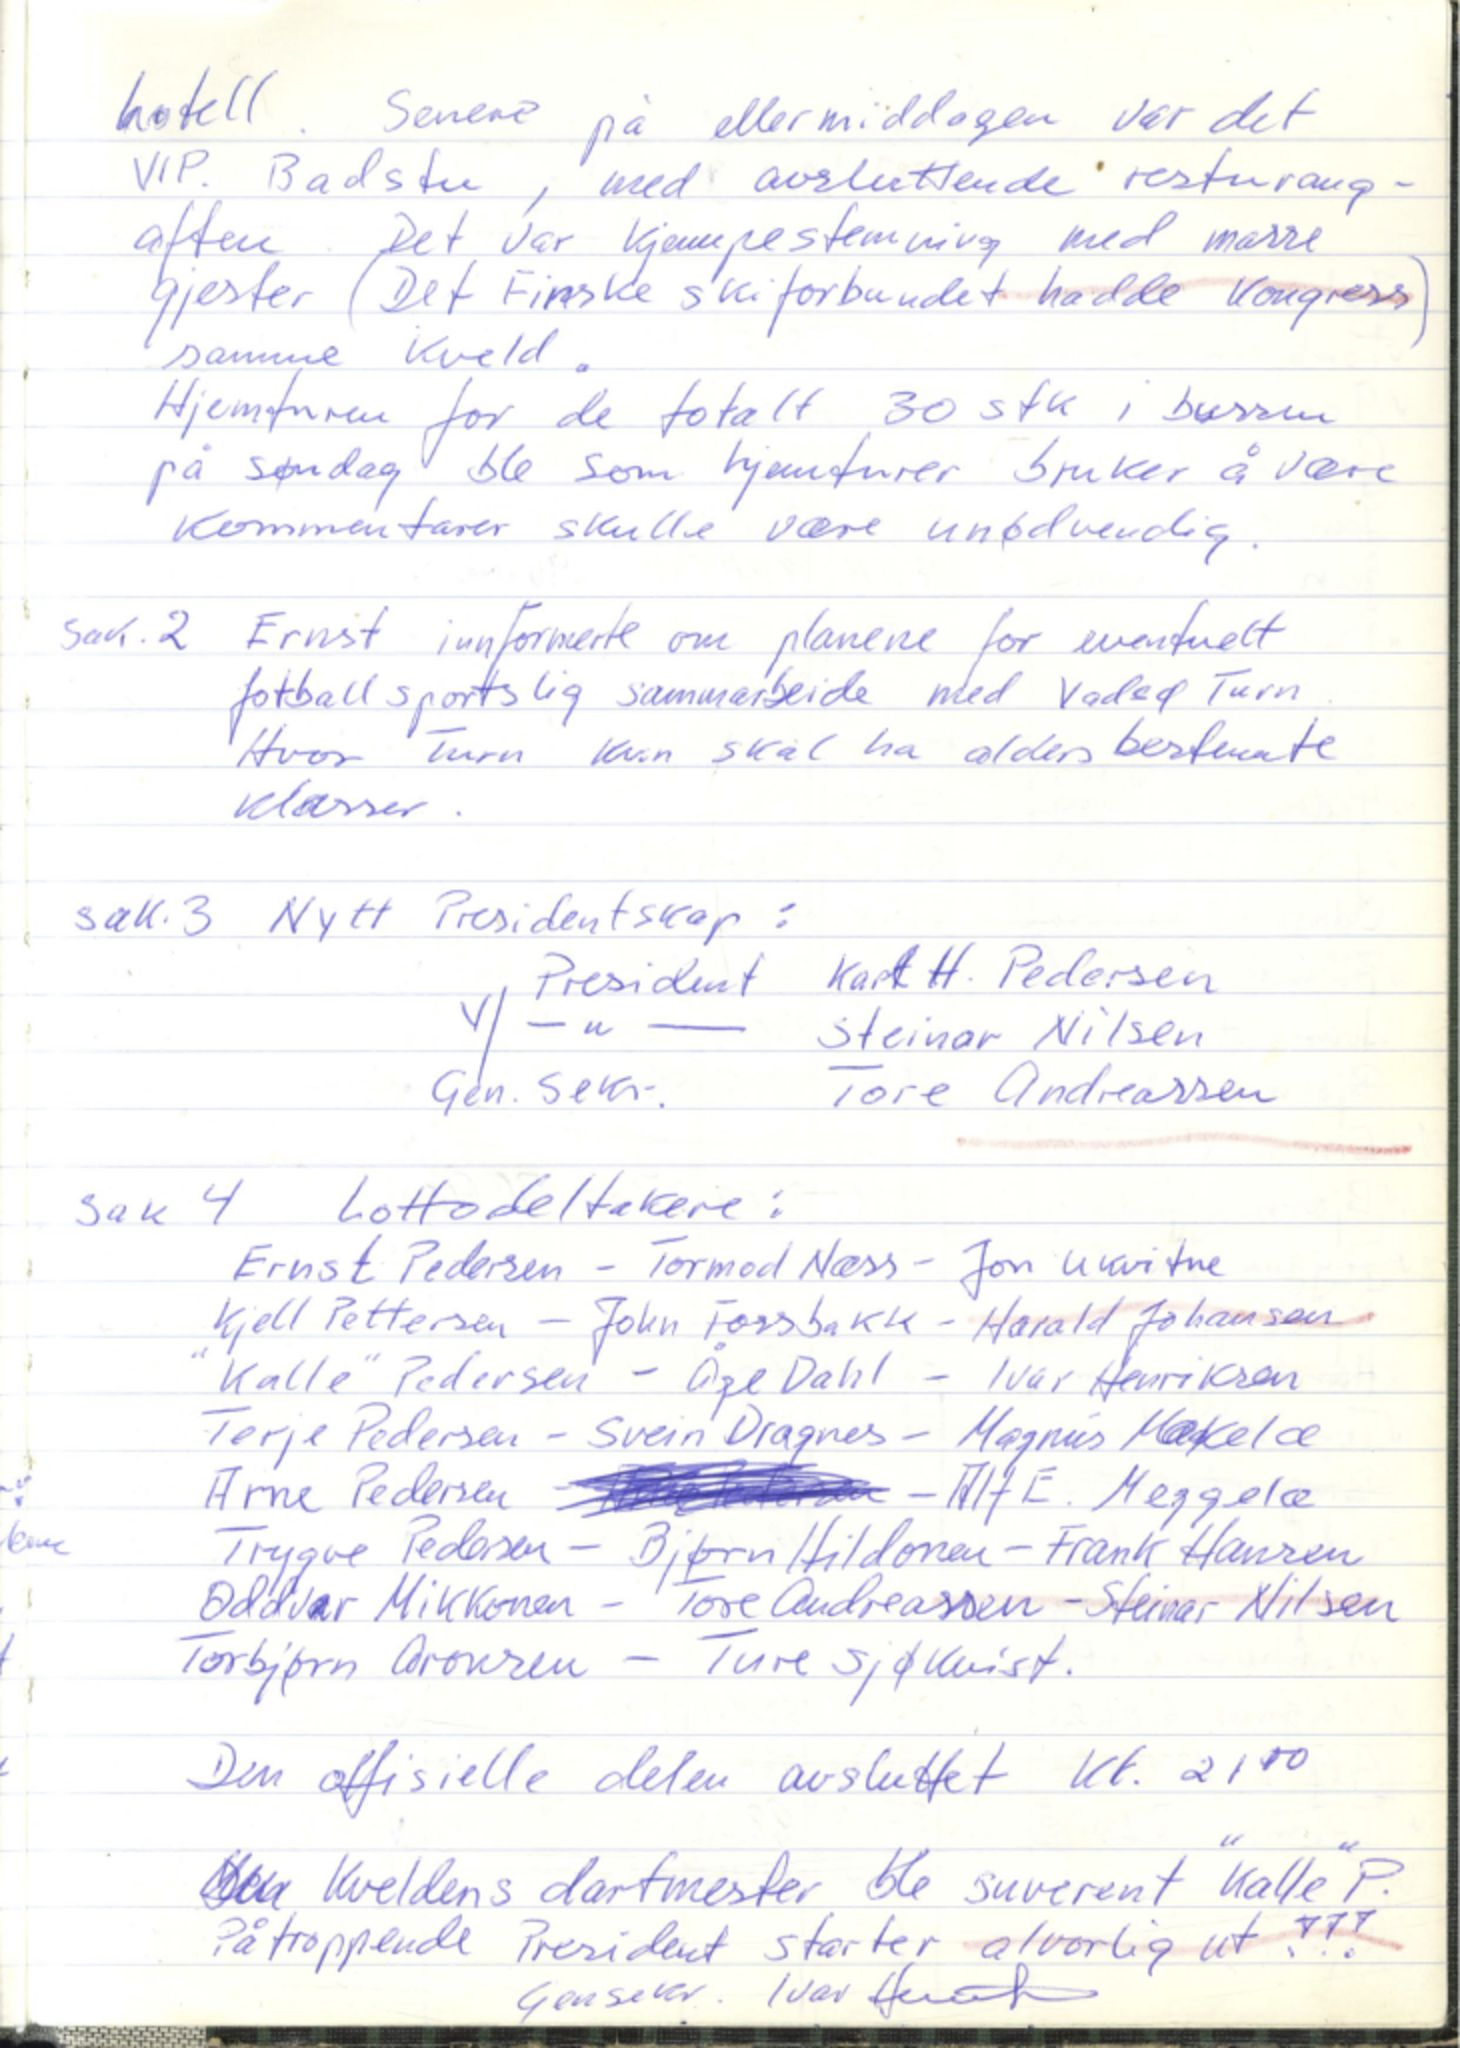 hotell. Senere på ettermiddagen var det
VIP. Badstu, med avsluttende resturang-
aften. Det var kjempestemning med masse
gjester (Det Finske skiforbundet hadde Kongress)
samme kveld.
Hjemturen for de totalt 30 stk i bussen
på søndag ble som hjemturer bruker å være
kommentarer skulle være unødvendig.
sak.2 Ernst innformerte om planene for eventuelt
fotballsportslig sammarbeide med Vadsø Turn.
Hvor Turn kun skal ha aldersbestemte
klasser.
sak.3 Nytt Presidentskap:
President Karl H. Pedersen
V/ — " — Steinar Nilsen
Gen. Sekr. Tore Andreassen
sak 4 Lottodeltakere:
Ernst Pedersen - Tormod Næss - Jon Ukvitne
Kjell Pettersen - John Fossbakk - Harald Johansen
"Kalle" Pedersen - Åge Dahl - Ivar Henriksen
Terje Pedersen - Svein Dragnes - Magnus Mækelæ
Arne Pedersen - - Alf E. Meggelæ
Trygve Pedersen - Bjørn Hildonen - Frank Hansen
Oddvar Mikkonen - Tore Andreassen - Steinar Nilsen
Torbjørn Aronsen - Ture Sjøkvist.
Den offisielle delen avsluttet Kl. 21⁰⁰
Kveldens dartmester ble suverent "Kalle" P.
Påtroppende President starter alvorlig ut !!!
Gensekr. Ivar